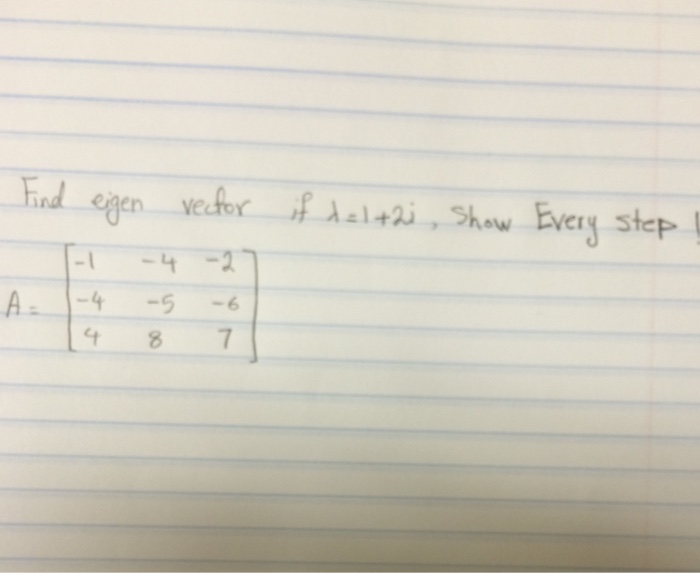 Find eigen vector if λ=1+2i, Show Every step !
A= [-1 -4 -2
-4 -5 -6
4 8 7]